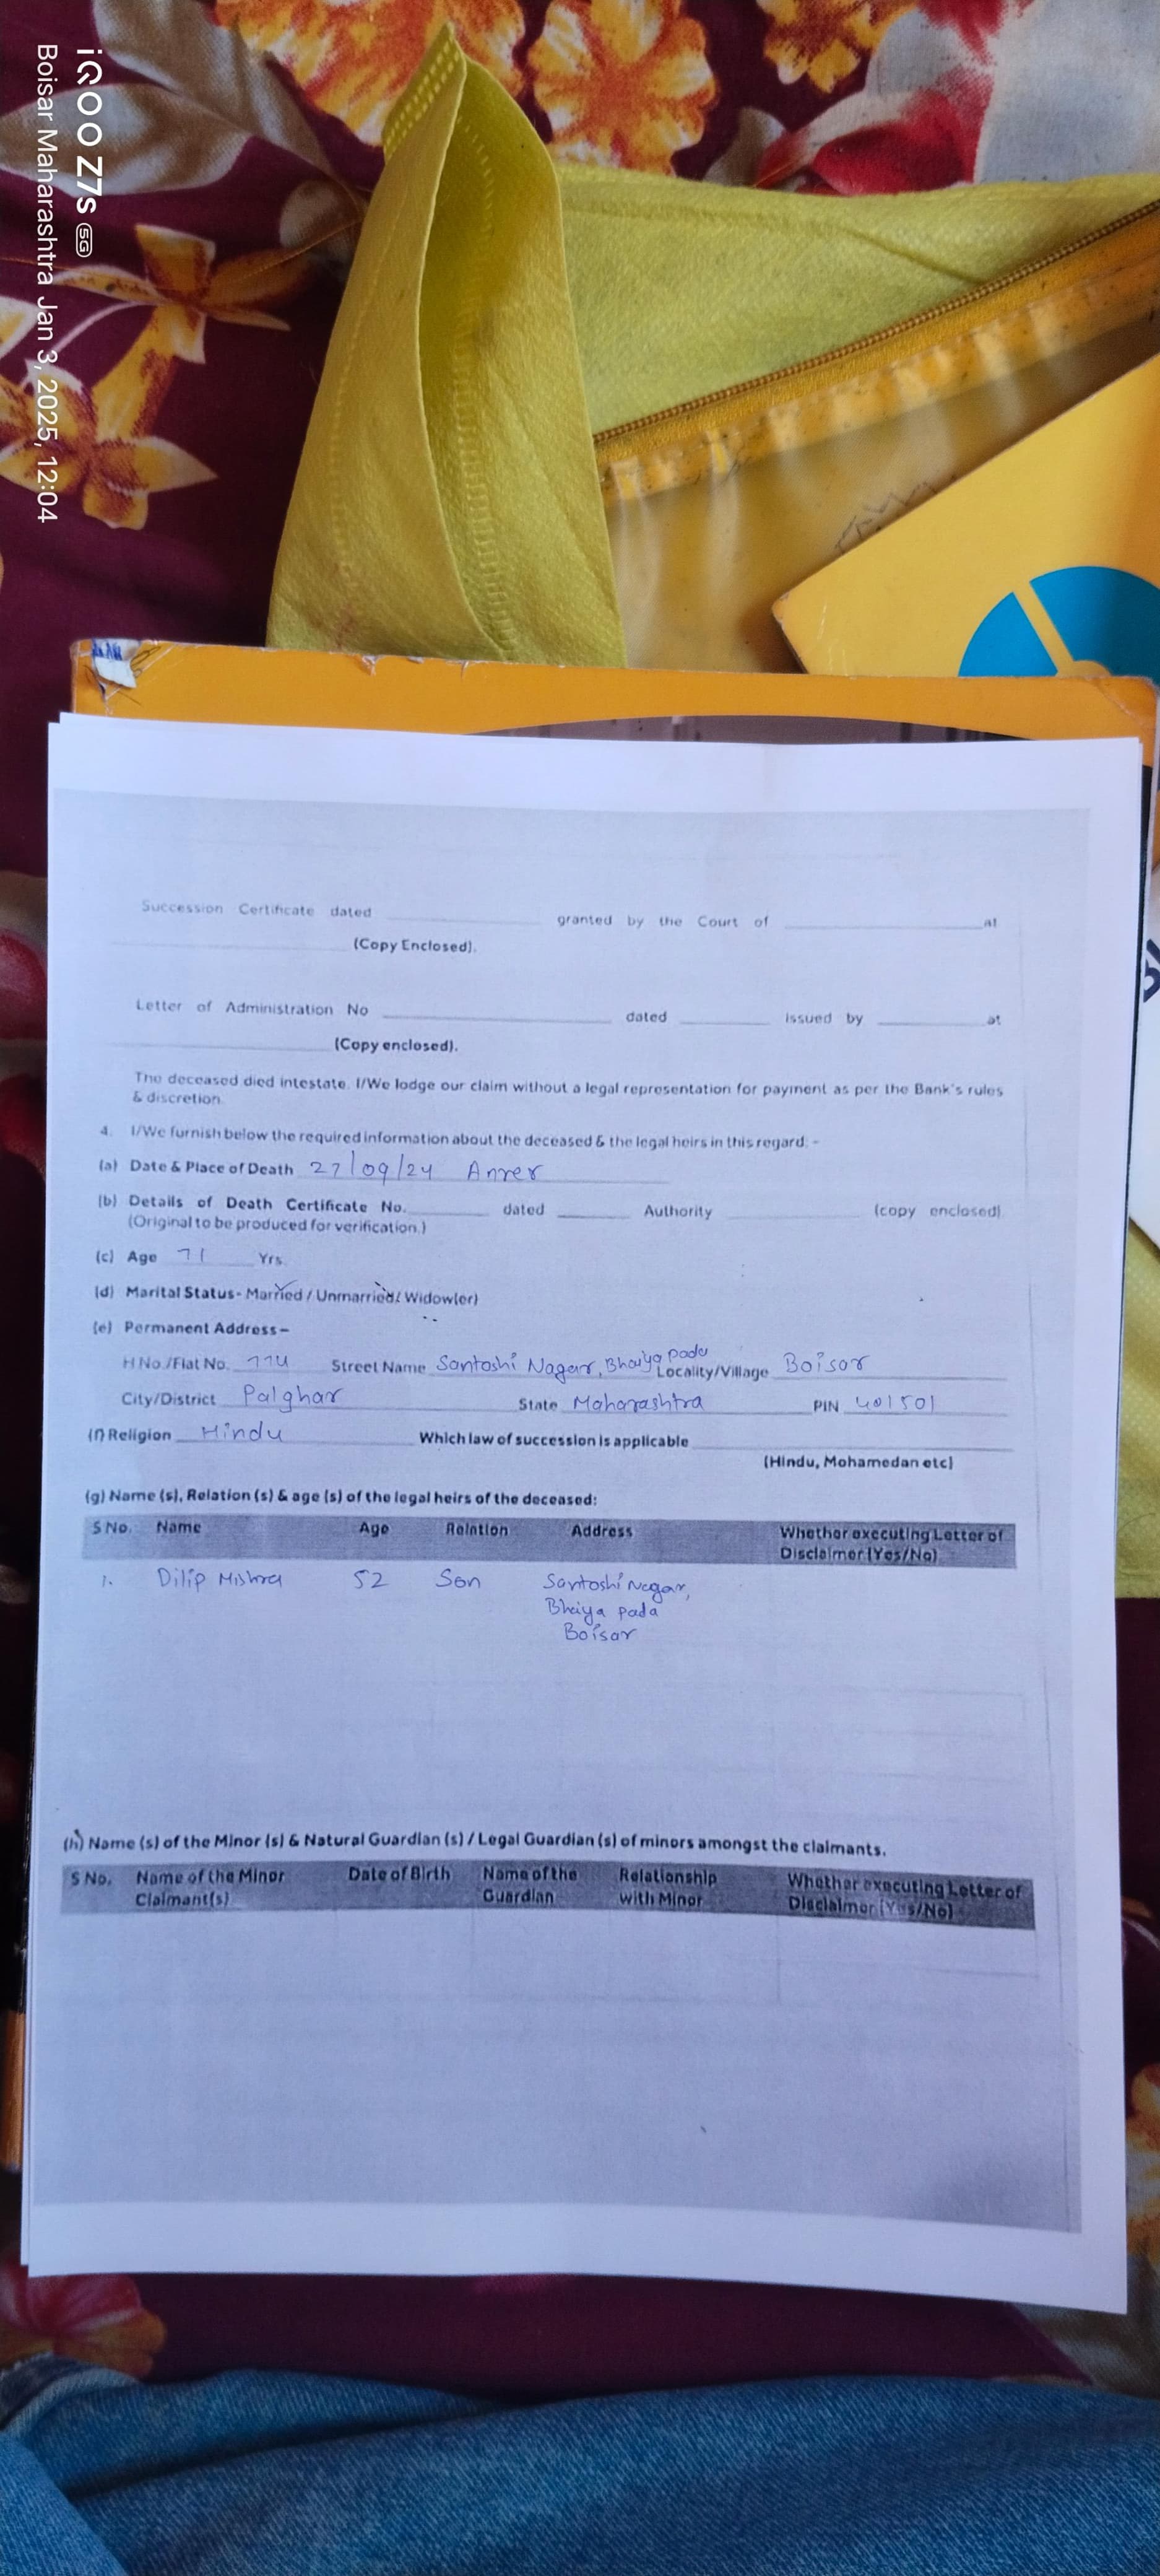 iQOO Z7s 5G
Boisar Maharashtra Jan 3, 2025, 12:04
Succession Certificate dated granted by the Court of at
(Copy Enclosed).
Letter of Administration No dated issued by at
(Copy enclosed).
The deceased died intestate. I/We lodge our claim without a legal representation for payment as per the Bank's rules
& discretion.
4. I/We furnish below the required information about the deceased & the legal heirs in this regard: -
(a) Date & Place of Death 27/09/24
(b) Details of Death Certificate No. dated Authority (copy enclosed).
(Original to be produced for verification.)
(c) Age 71 Yrs.
(d) Marital Status- Married / Unmarried/ Widow(er)
(e) Permanent Address–
H No./Flat No. Street Name Santoshi Nagar, Bhaiya pada Locality/Village Boisar
City/District Palghar State Maharashtra PIN 401501
(f) Religion Hindu Which law of succession is applicable
(Hindu, Mohamedan etc)
(g) Name (s), Relation (s) & age (s) of the legal heirs of the deceased:
S No. Name Age Relation Address Whether executing Letter of
Disclaimer (Yes/No)
1. Dilip Mishra 52 Son Santoshi Nagar,
Bhaiya pada
Boisar
(h) Name (s) of the Minor (s) & Natural Guardian (s) / Legal Guardian (s) of minors amongst the claimants.
S No. Name of the Minor Date of Birth Name of the Relationship Whether executing Letter of
Claimant(s) Guardian with Minor Disclaimer (Yes/No)